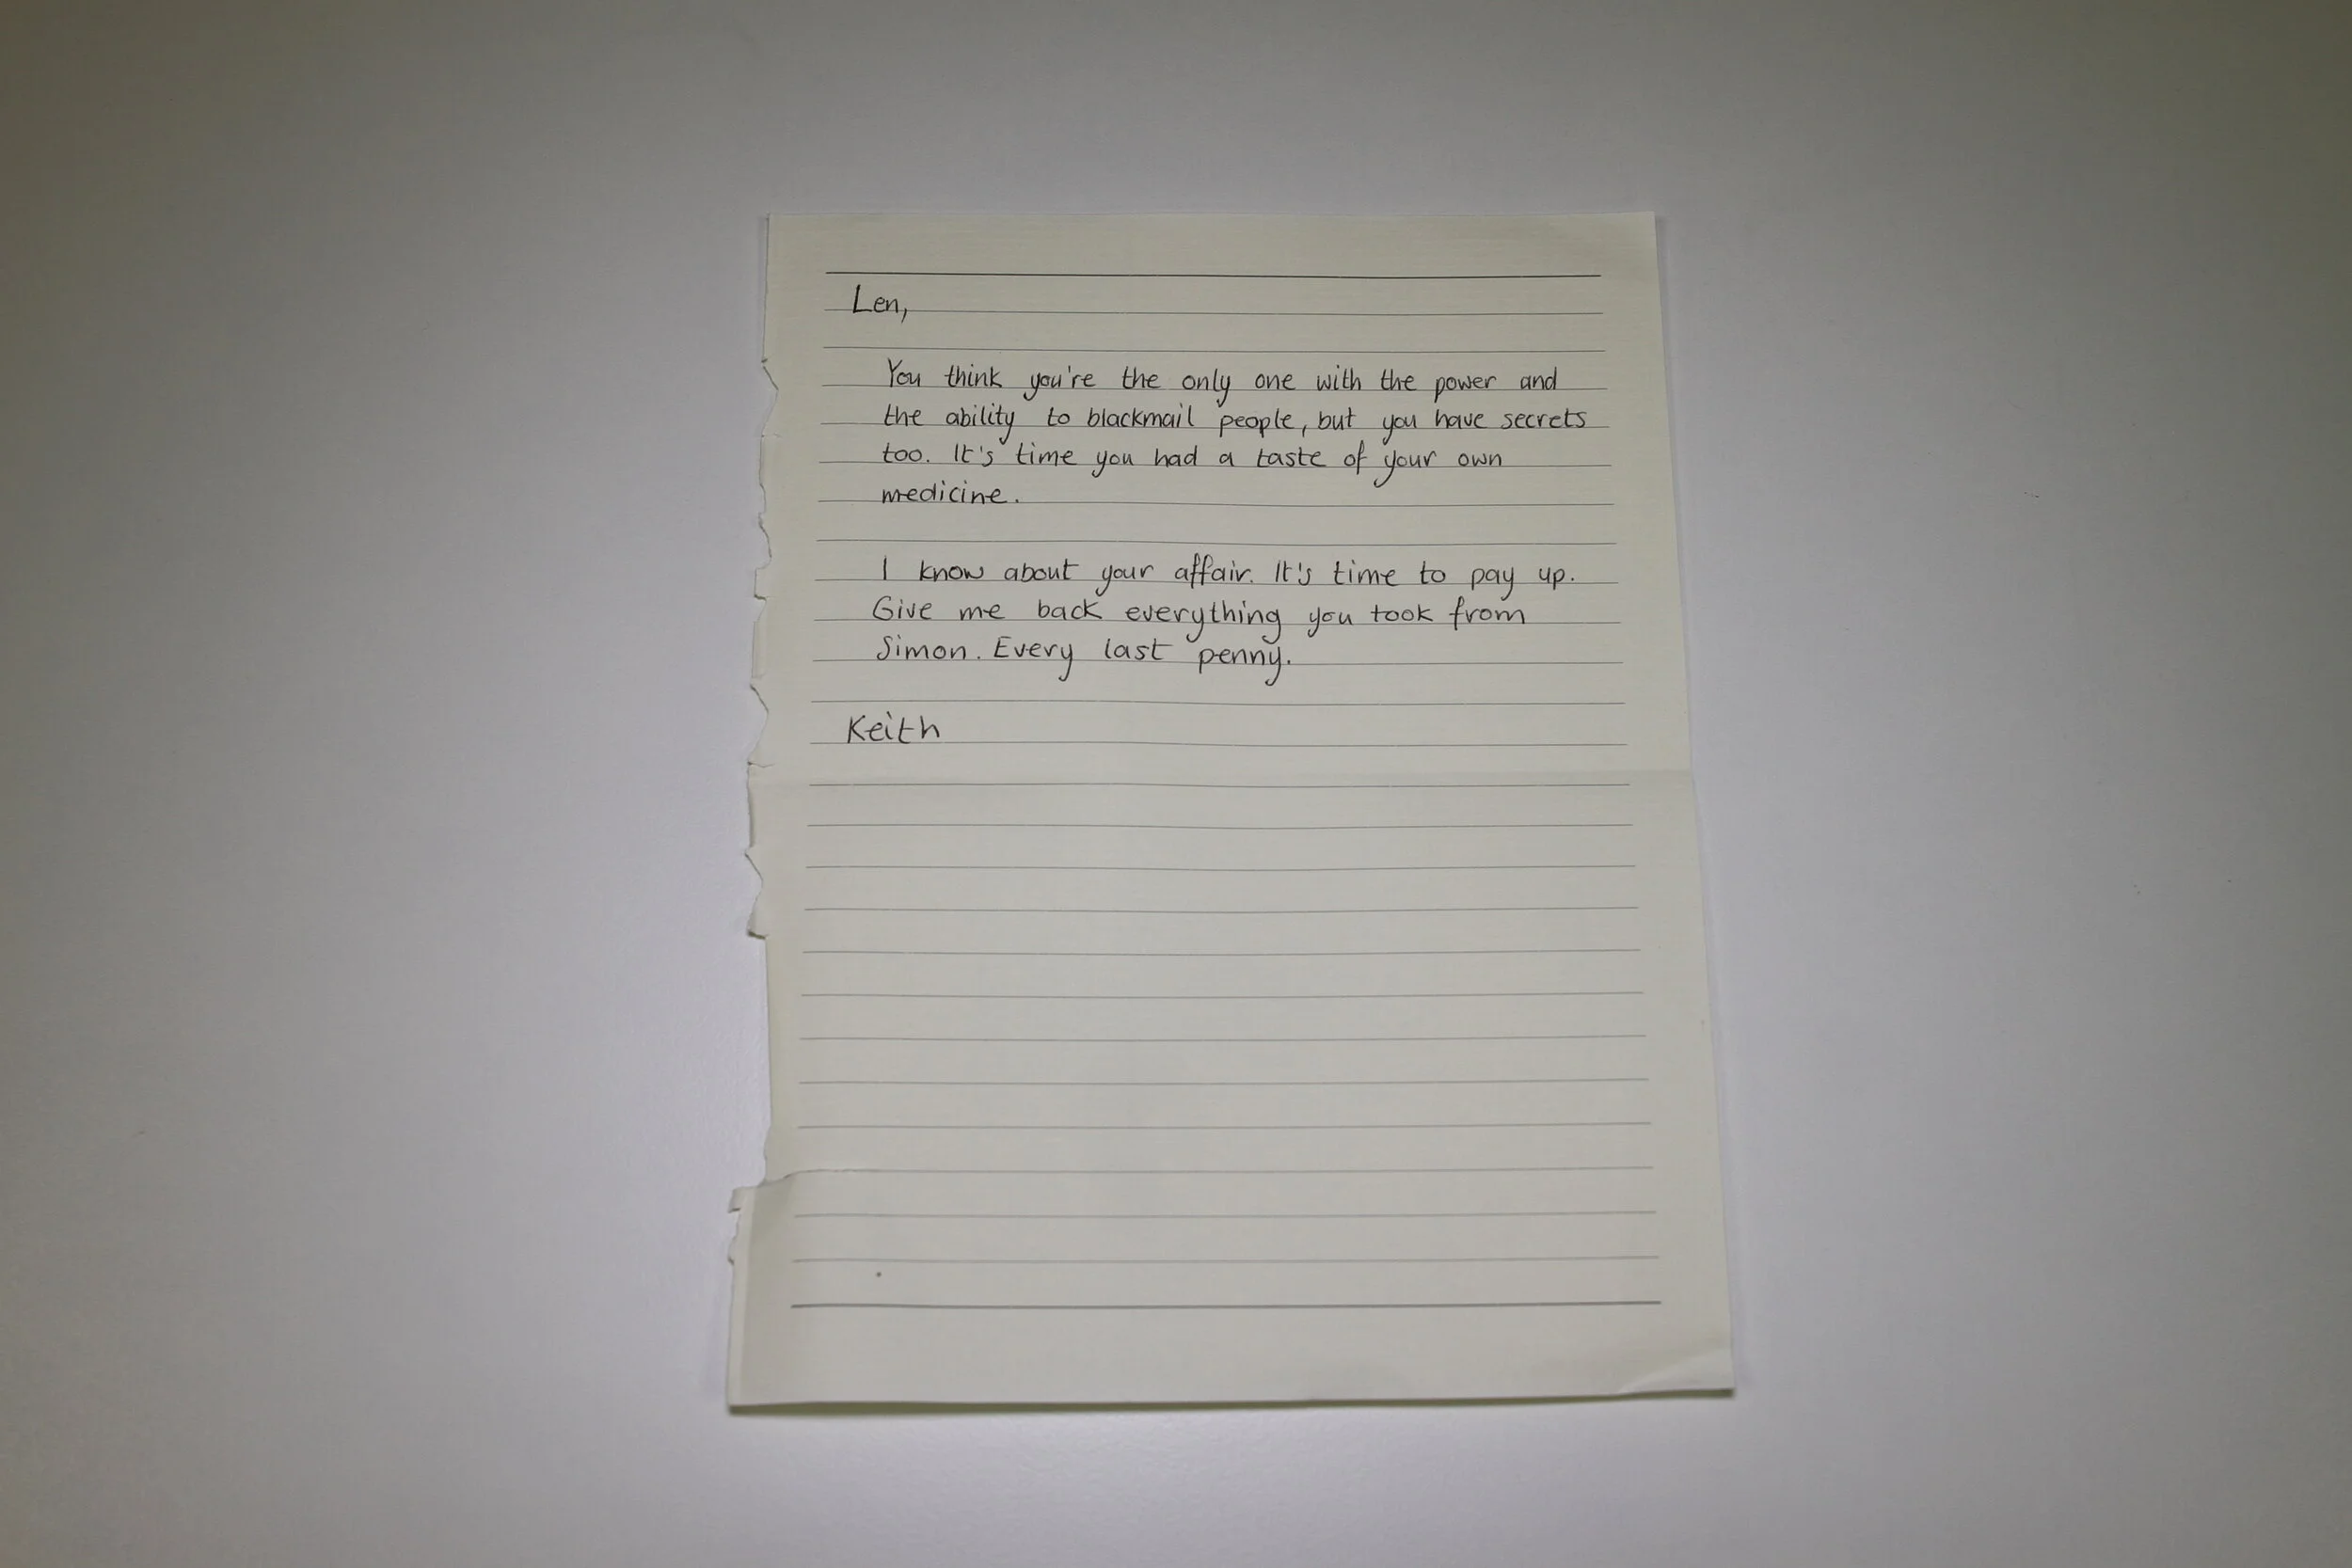 Len,
You think you're the only one with the power and
the ability to blackmail people, but you have secrets
too. It's time you had a taste of your own
medicine.
I know about your affair. It's time to pay up.
Give me back everything you took from
Simon. Every last penny.
Keith